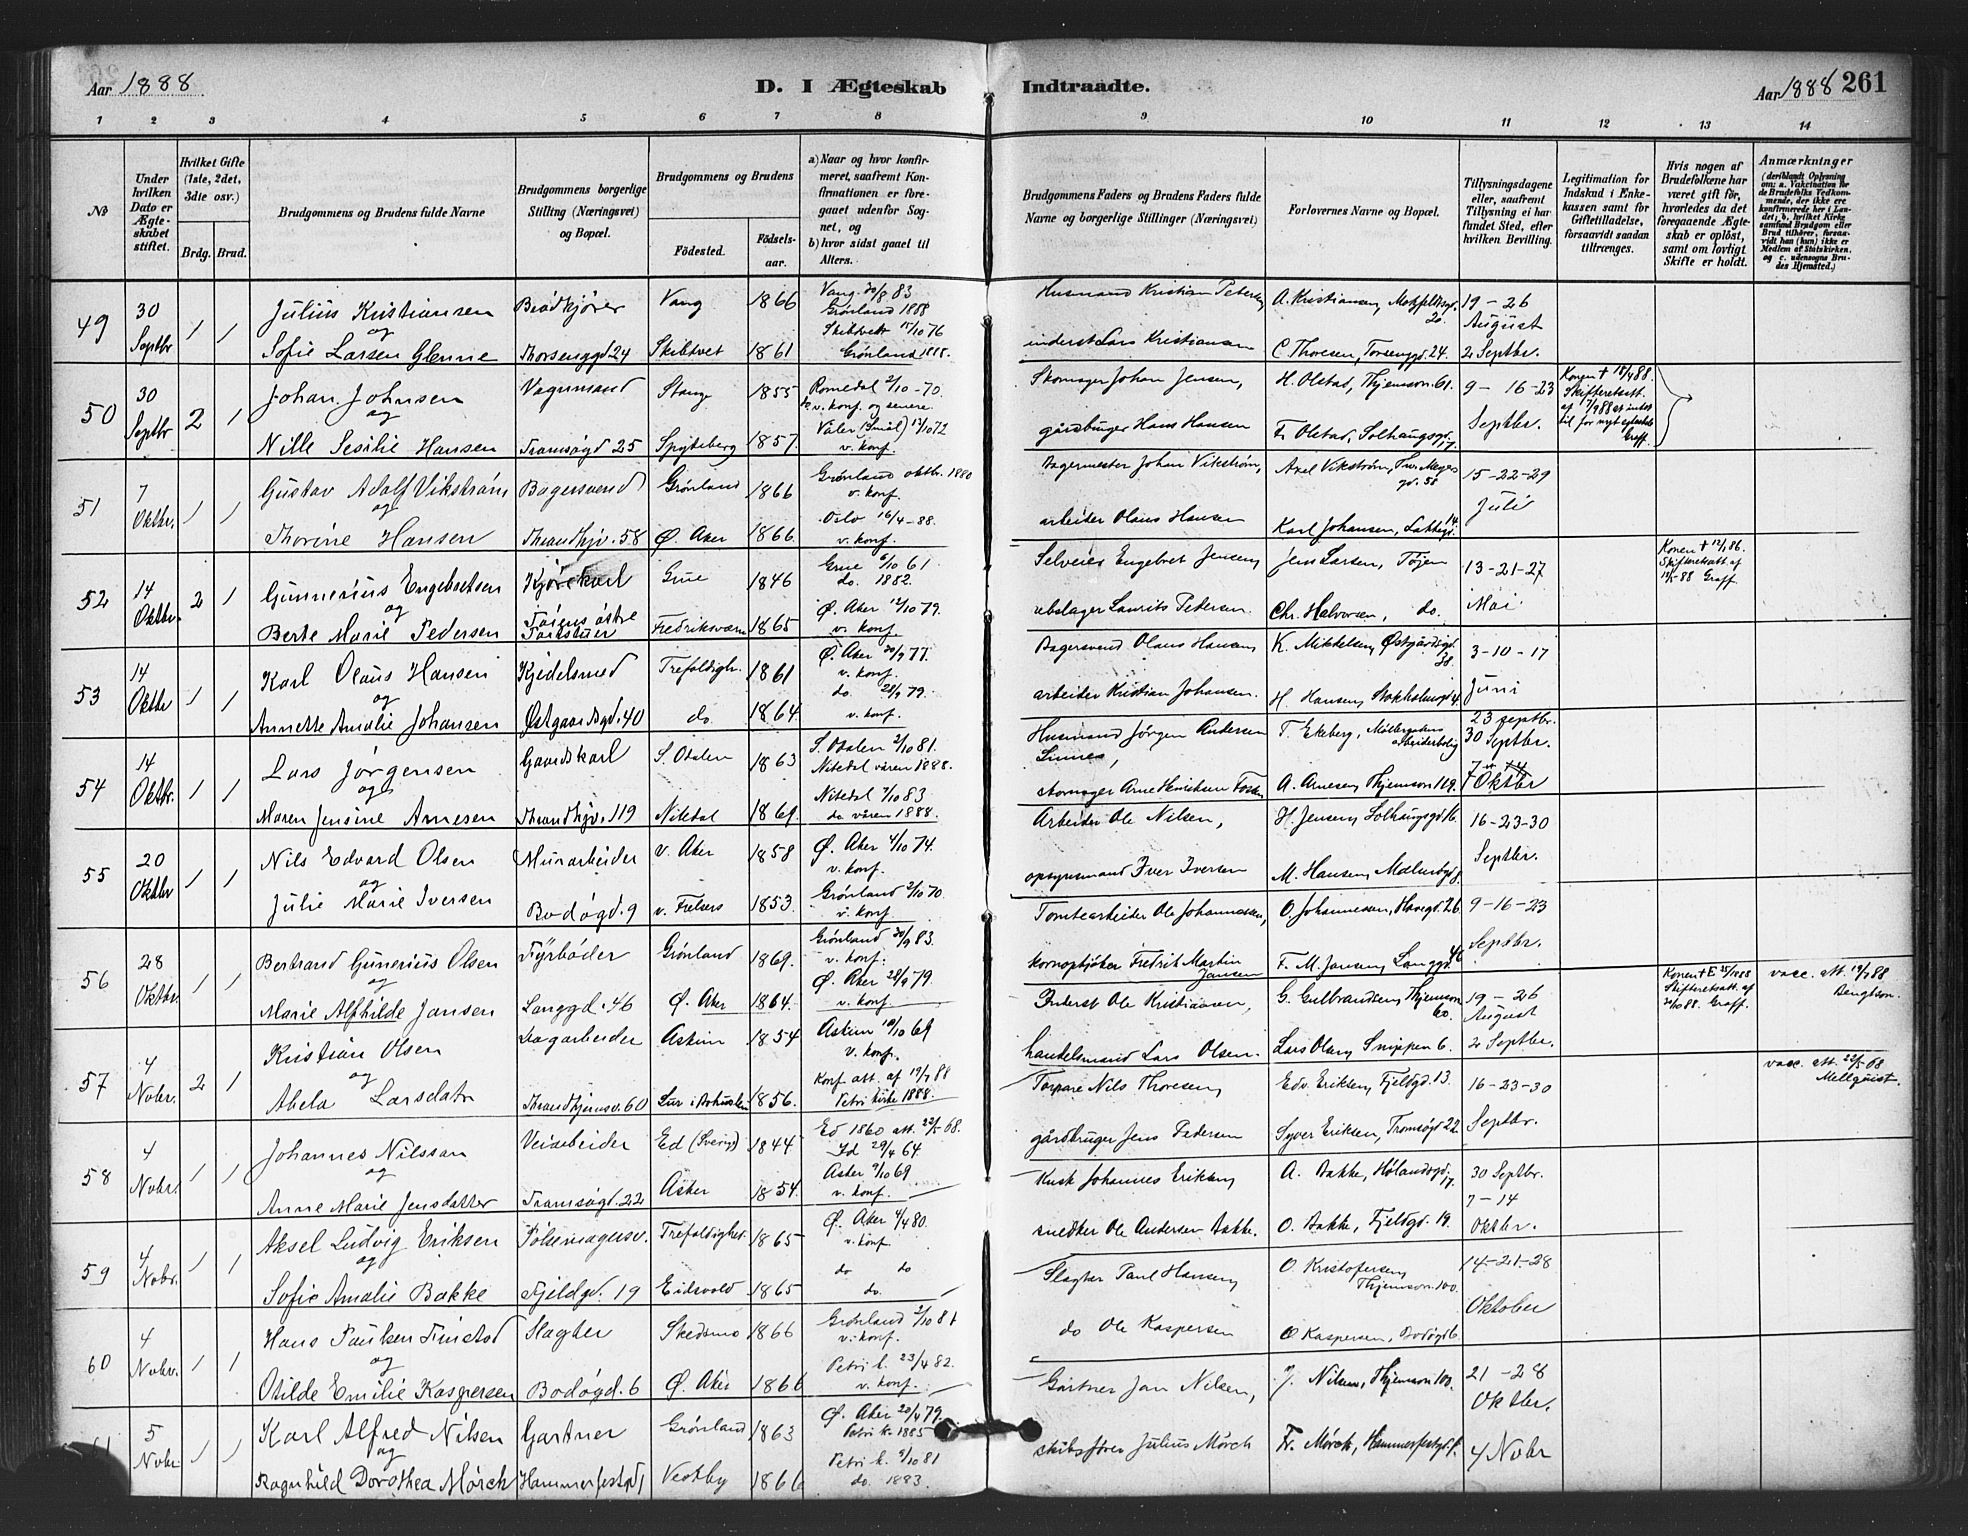 Aar 1888
D. I Ægteskab
Indtraadte.
Aar 1888 261
1 2 3 4 5 6 7 8 9 10 11 12 13 14
No
Under hvilken Dato er Ægteskabet stiftet.
Hvilket Gifte (1ste, 2det, 3die osv.)
Brdg. Brud.
Brudgommens og Brudens fulde Navne
Brudgommens borgerlige Stilling (Næringsvet) og Bopæl.
Brudgommens og Brudens
Fødested. Fødselsaar.
a) Naar og hvor konfirmeret, saafremt Konfirmationen er foregaaet udenfor Sognet, og
b) hvor sidst gaaet til Alters.
Brudgommens Faders og Brudens Faders fulde Navne og borgerlige Stillinger (Næringsvet)
Forlovernes Navne og Bopæl.
Tillysningsdagene eller, saafremt Tillysning ei har fundet Sted, efter hvilken Bevilling.
Legitimation for Indskud i Enkekassen samt for Giftetilladelse, forsaavidt saadan tiltrænges.
Hvis nogen af Brudefolkene har været gift før, hvorledes da det foregaaende Ægteskab er opløst, samt om lovligt Skifte er holdt.
Anmærkninger (deriblandt Oplysning om: a. Vakcination for de Brudefolks Vedkommende, der ikke ere konfirmerede her i Landet; b. hvilket Kirkesamfund Brudgom eller Brud tilhører, forsaavidt han (hun) ikke er Medlem af Statskirken. og c. udensogns Brudes Hjemsted.)
49 30 Septbr 1 1 Julius Kristiansen Brødkjører Vang 1866 Vang 20/8 83 Grønland 1888 Husmand Kristian Petersen A. Kristiansen, 20. 19-26 August
og
Sofie Larsen Glenne Thorsenggd 24 Skibtvet 1861 Skibtvet 15/10 76 Grønland 1888. inderst Lars Kristiansen C. Thoresen, Torsenggd. 24. 2 Septbr.
50 30 Septbr 2 1 Johan Johnsen Vognmand Stange 1855 Romedal 2/10-70. v. konf. og senere Skomager Johan Jensen, H. Olstad, Thjemsvn 61. 9-16-23 Septbr. Konen † 18/4 88. Skifteretsatt. af 7/9 88 at intet til for nyt egteskab Graff.
og
Nille Sesilie Hansen Tromsøgd 25 Spydeberg 1857. Våler (Smål) 13/10 72 v. konf. gårdbruger Hans Hansen Fr. Olstad, Solhaugsgd. 17.
51 7 Oktbr. 1 1 Gustav Adolf Vikstrøm Bagersvend Grønland 1866 Grønland oktbr. 1880 v. konf. Bagermester Johan Vikstrøm, Axel Vikstrøm, Thv. Meyers gd. 58 15-22-29 Juli
og
Thorine Hansen Thrandhjv. 58 Ø. Aker 1866. Oslo 16/4-88. v. konf. arbeider Olaus Hansen Karl Johansen, Lakkegd. 14.
52 14 Oktbr. 2 1 Gunnerius Engebretsen Kjørekarl Grue 1846 Grue 6/10 61. do. 1882. Selveier Engebret Jensen Jens Larsen, Tøjen 13-21-27 Mai Konen † 12/1 86. Skifteretsatt. af 12/5 88 Graff
og
Berte Marie Pedersen Tøiens østre Fredriksværn 1865 Ø. Aker 12/10 79. v. konf. ubslager Laurits Pedersen Chr. Halvorsen, do.
53 14 Oktbr 1 1 Karl Olaus Hansen Kjedelsmed Trefoldigh. 1861 Ø. Aker 30/9 77. v. konf. Bagersvend Olaus Hansen K. Mikkelsen, Østgårdsgd. 38. 3-10-17 Juni
og
Annette Amalie Johansen Østgaardsgd. 40 do. 1864. do. 28/9 79. v. konf. arbeider Kristian Johansen. H. Hansen, Stokholmsgd 4.
54 14 Oktbr. 1 1 Lars Jørgensen Gaardskarl S. Odalen 1863 S. Odalen 2/10 81. Nitedal våren 1888. Husmand Jørgen Andersen Sinnes, T. Ekeberg, Møllergatens arbeiderbolig 23 septbr. 30 Septbr.
og
Maren Jensine Arnesen Thrandhjv. 119 Nitedal 1869. Nitedal 7/10 83 do våren 1888. skomager Arne Henriksen A. Arnesen Thjemsvn 119. 7 Oktbr
55 20 Oktbr 1 1 Nils Edvard Olsen Murarbeider V. Aker 1858 Ø. Aker 4/10 74. v. konf. Arbeider Ole Nilsen, H. Jensen, Solhaugsgd 16. 16-23-30 Septbr.
og
Julie Marie Iversen Bodøgd. 9 v. Frelsers 1853. Grønland 2/10 70. v. konf. opsynsmand Iver Iversen M. Hansen, Malmøgd 8.
56 28 Oktbr. 1 1 Bertrand Gunerius Olsen Fyrbøder Grønland 1869. Grønland 30/9 83. v. konf. Tomtearbeider Ole Johannessen, O. Johannesen, Havegd. 26. 9-16-23 Septbr.
og
Marie Alfhilde Jansen Langgd. 46 Ø. Aker 1864. Ø. Aker 28/9 79. v. konf. kornopkjøber Fredrik Martin Jansen F. M. Jansen, Langgd. 46
57 4 Nobr. 2 1 Kristian Olsen Dagarbeider Askim 1854 Askim 10/10 69 v. konf. Inderst Ole Kristiansen, G. Gulbrandsen, Thjemsvn 60. 19-26 August Konen † 25/1 1888 Skifteretsatt. af 20/10 88. Graff. vacc. att. 19/7 88 Bengtson.
og
Abela Larsdatr Thrandhjemsv. 60 Lur i Bohuslen 1856. Konf. att. af 19/7 88 Petri kirke 1888. handelsmand Lars Olsen. Lars Olsen Snippen 6. 2 Septbr.
58 4 Nobr. 1 1 Johannes Nilsson Veiarbeider Ed (Sverige) 1844 Ed 1860 att. 22/5 68. Torpare Nils Thoresen, Edv. Eriksen, Fjeldgd. 13. 16-23-30 Septbr. vacc. att. 22/5 68 Mellquist.
og
Anne Marie Jensdatter Tromsøgd. 22 Asker 1854. Asker 9/10 69 v. konf. gårdbruger Jens Pedersen Syver Eriksen, Tromsøgd 22.
59 4 Nobr. 1 1 Aksel Ludvig Eriksen Pølsemagersv. Trefoldighed. 1865 Ø. Aker 4/4 80. v. konf. Kusk Johannes Eriksen A. Bakke, Hølandsgd. 17. 30 Septbr. 7-14 Oktbr.
og
Sofie Amalie Bakke Fjeldgd. 19 Eidsvold 1865 do do do. snedker Ole Andersen Bakke. O. Bakke, Fjeldgd. 19.
60 4 Nobr. 1 1 Hans Paulsen Finstad Slagter Skedsmo 1866 Grønland 2/10 81 v. konf. Slagter Paul Hansen O. Kristofersen, Thjemsvn. 100. 14-21-28 Oktober
og
Otilde Emilie Kaspersen Bodøgd. 6 Ø. Aker 1866 Petri k. 23/4 82. v. konf. do Ole Kaspersen O. Kaspersen, Bodøgd 6.
61 5 Nobr 1 1 Karl Alfred Nilsen Gartner Grønland 1863 Ø. Aker 20/4 79. Petri k. 1885 Gartner Jan Nilsen, J. Nilsen, Thjemsvn 100. 21-28 Oktbr.
og
Ragnhild Dorothea Mørch Hammerfestgd 1 Vestby 1866 Petri k. 9/10 81 do. 1883. skibsfører Julius Mørch Fr. Mørch, Hammerfestgd. 1. 4 Nobr